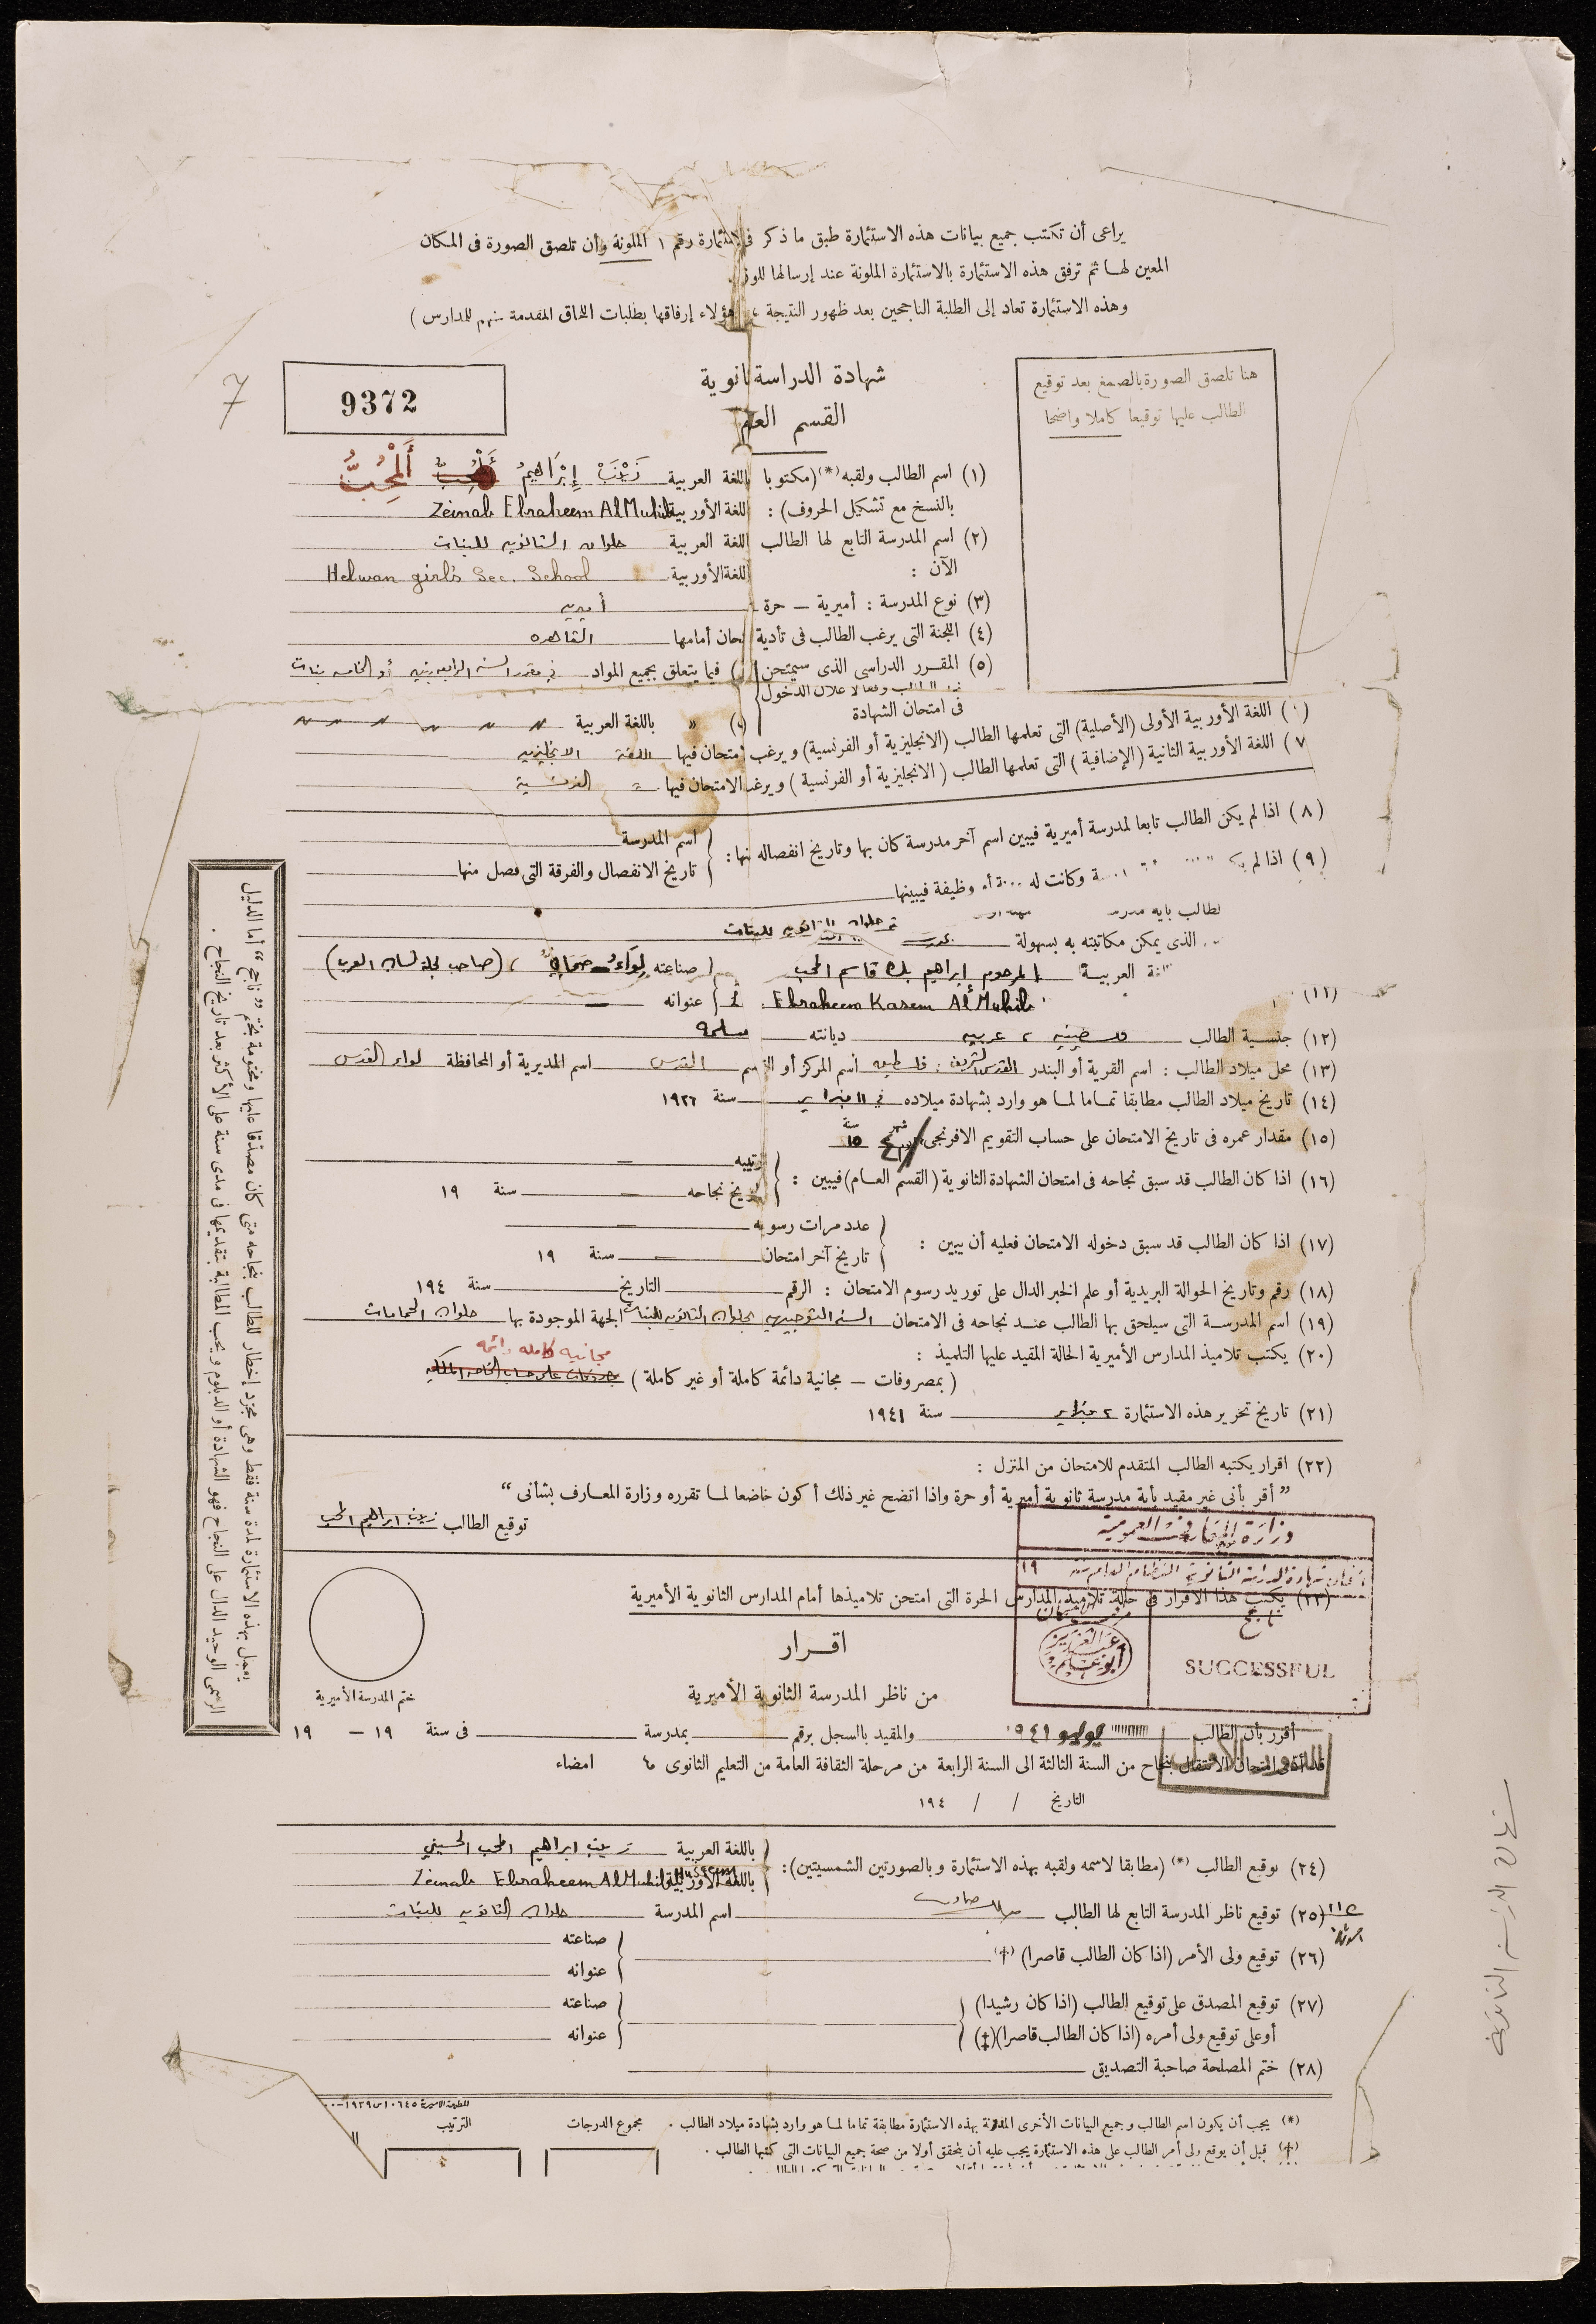 يراعى أن تكتب جميع بيانات هذه الاستمارة طبق ما ذكر فى الاستمارة رقم ١ الملونة وأن تلصق الصورة فى المكان
المعين لها ثم ترفق هذه الاستمارة بالاستمارة الملونة عند إرسالها للوز
وهذه الاستمارة تعاد إلى الطلبة الناجحين بعد ظهور النتيجة هؤلاء إرفاقها بطلبات الحاق المقدمة منهم للمدارس )
هنا تلصق الصورة بالصمغ بعد توقيع
الطالب عليها توقيعا كاملا واضحا
شهادة الدراسة انوية
القسم العام
9372
7
(١) اسم الطالب ولقبه (*) (مكتوبا باللغة العربية زَيْنَبْ إِبْرَاهِيمُ أَلْمُحِبُّ
بالنسخ مع تشكيل الحروف) : اللغة الأوربية Zeinab Ebraheem AlMuhib
(٢) اسم المدرسة التابع لها الطالب اللغة العربية حلوان الثانويه للبنات
الآن : اللغة الأوربية Helwan girl's Sec. School
(٣) نوع المدرسة : أميرية – حرة أميريه
(٤) اللجنة التى يرغب الطالب فى تأدية حان أمامها القاهره
(٥) المقرر الدراسى الذى سيمتحن ) فيما يتعلق بجميع المواد فى مقرر السنه الرابعه بنين أو الخامسه بنات
علان الدخول
فى امتحان الشهادة ) » باللغة العربية 〃 〃 〃 〃 〃 〃
) اللغة الأوربية الأولى (الأصلية) التى تعلمها الطالب (الانجليزية أو الفرنسية) ويرغب امتحان فيها اللغة الانجليزيه
٧) اللغة الأوربية الثانية (الإضافية) التى تعلمها الطالب (الانجليزية أو الفرنسية) ويرغب الامتحان فيها الفرنسية
(٨) اذا لم يكن الطالب تابعا لمدرسة أميرية فيبين اسم آخر مدرسة كان بها وتاريخ انفصاله منها :
اسم المدرسة
تاريخ الانفصال والفرقة التى فصل منها
(٩) اذا لم وكانت له وظيفة فيبينها
الذى يمكن مكاتبته به بسهولة حلوان الثانويه للبنات
العربية المرحوم ابراهيم بك قاسم المحب صناعته لواء صحافى ، (صاحب مجلة لسان العرب)
(١١) Ebraheem Kasem Al Muhib عنوانه —
(١٢) جنسية الطالب فلسطينيه ، عربيه ديانته مسلمه
(١٣) محل ميلاد الطالب : اسم القرية أو البندر القدس الشريف . فلسطين اسم المركز أو القسم القدس اسم المديرية أو المحافظة لواء القدس
(١٤) تاريخ ميلاد الطالب مطابقا تماما لما هو وارد بشهادة ميلاده فى ١١ فبراير سنة ١٩٢٦
(١٥) مقدار عمره فى تاريخ الامتحان على حساب التقويم الافرنجى شهر ٤ سنة ١٥
(١٦) اذا كان الطالب قد سبق نجاحه فى امتحان الشهادة الثانوية (القسم العام) فيبين :
ترتيبه —
تاريخ نجاحه — سنة ١٩
(١٧) اذا كان الطالب قد سبق دخوله الامتحان فعليه أن يبين :
عدد مرات رسوبه —
تاريخ آخر امتحان — سنة ١٩
(١٨) رقم وتاريخ الحوالة البريدية أو علم الخبر الدال على توريد رسوم الامتحان : الرقم التاريخ سنة ١٩٤
(١٩) اسم المدرسة التى سيلحق بها الطالب عند نجاحه فى الامتحان السنه التوجيهيه بحلوان الثانويه للبنات الجهة الموجودة بها حلوان الحمامات
(٢٠) يكتب تلاميذ المدارس الأميرية الحالة المقيد عليها التلميذ : مجانيه كامله دائمه
(بمصروفات – مجانية دائمة كاملة أو غير كاملة) بمصروفات على حساب الخاصه الملكيه
(٢١) تاريخ تحرير هذه الاستمارة ٢ فبراير سنة ١٩٤١
(٢٢) اقرار يكتبه الطالب المتقدم للامتحان من المنزل :
” أقر بأنى غير مقيد بأية مدرسة ثانوية أميرية أو حرة واذا اتضح غير ذلك أكون خاضعا لما تقرره وزارة المعارف بشأنى “
توقيع الطالب زينب ابراهيم المحب
وزارة المعارف العمومية
امتحان شهادة الدراسة الثانوية القسم العام سنة ١٩
ناجح
SUCCESSFUL
عبد العزيز أبو علم
(٢٣) يكتب هذا الاقرار فى حالة تلاميذ المدارس الحرة التى امتحن تلاميذها أمام المدارس الثانوية الأميرية
اقرار
من ناظر المدرسة الثانوية الأميرية
ختم المدرسة الأميرية
أقرر بأن الطالب يوليو ١٩٤١ والمقيد بالسجل برقم بمدرسة فى سنة ١٩ – ١٩
الدور الأول
قد أدى امتحان الانتقال بنجاح من السنة الثالثة الى السنة الرابعة من مرحلة الثقافة العامة من التعليم الثانوى ما امضاء
التاريخ / / ١٩٤
(٢٤) توقيع الطالب (*) (مطابقا لاسمه ولقبه بهذه الاستمارة وبالصورتين الشمسيتين) :
باللغة العربية زينب ابراهيم المحب الحسينى
باللغة الأوربية Zeinab Ebraheem AlMuhib Husseini
(٢٥) توقيع ناظر المدرسة التابع لها الطالب اسم المدرسة حلوان الثانويه للبنات
(٢٦) توقيع ولى الأمر (اذا كان الطالب قاصرا) (†) صناعته
عنوانه
(٢٧) توقيع المصدق على توقيع الطالب (اذا كان رشيدا) صناعته
أو على توقيع ولى أمره (اذا كان الطالب قاصرا) (‡) عنوانه
(٢٨) ختم المصلحة صاحبة التصديق
(*) يجب أن يكون اسم الطالب وجميع البيانات الأخرى المدونة بهذه الاستمارة مطابقة تماما لما هو وارد بشهادة ميلاد الطالب .
(†) قبل أن يوقع ولى أمر الطالب على هذه الاستمارة يجب عليه أن يتحقق أولا من صحة جميع البيانات التى كتبها الطالب .
مجموع الدرجات
الترتيب
يعمل بهذه الاستمارة لمدة سنة فقط وهى مجرد إخطار للطالب بنجاحه متى كان مصدقا عليها ومختومة بختم ” ناجح “ أما الدليل
الرسمى الوحيد الدال على النجاح فهو الشهادة أو الدبلوم ويجب المطالبة بتقديمها فى مدى سنة على الأكثر بعد تاريخ النجاح .